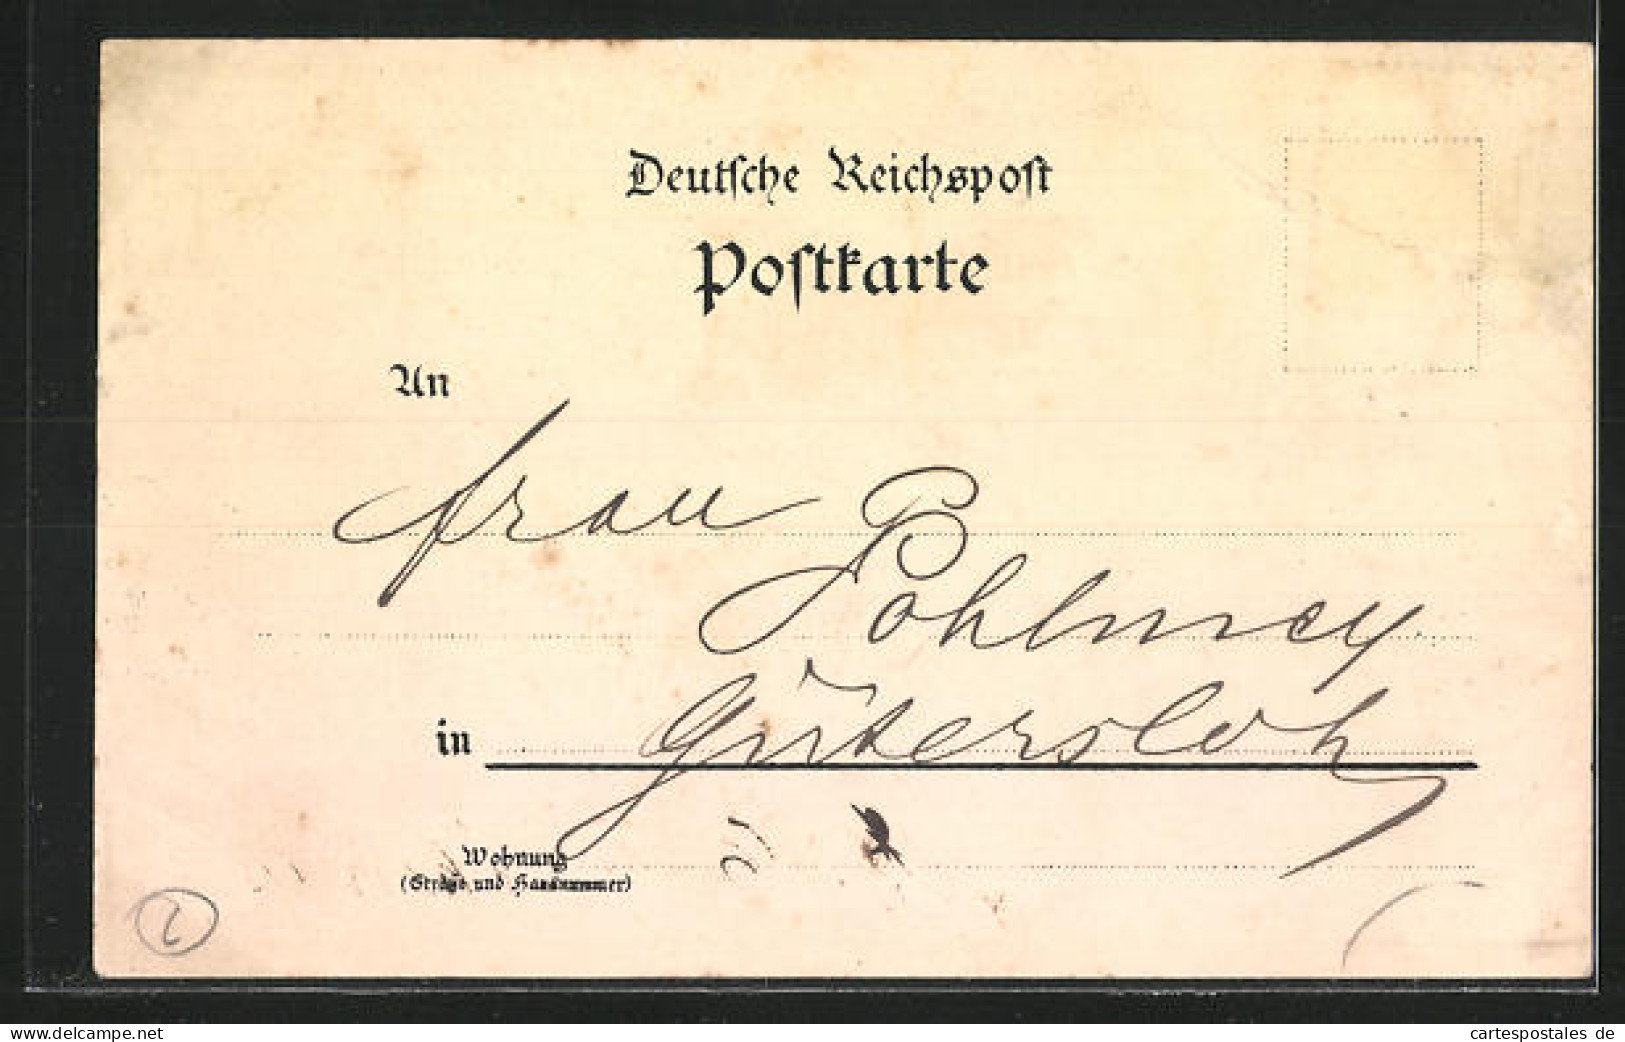 Deutsche Reichspost
Postkarte
An
Frau
Pohlmey
in Gütersloh
Wohnung
(Straße und Hausnummer)
cartespostales de